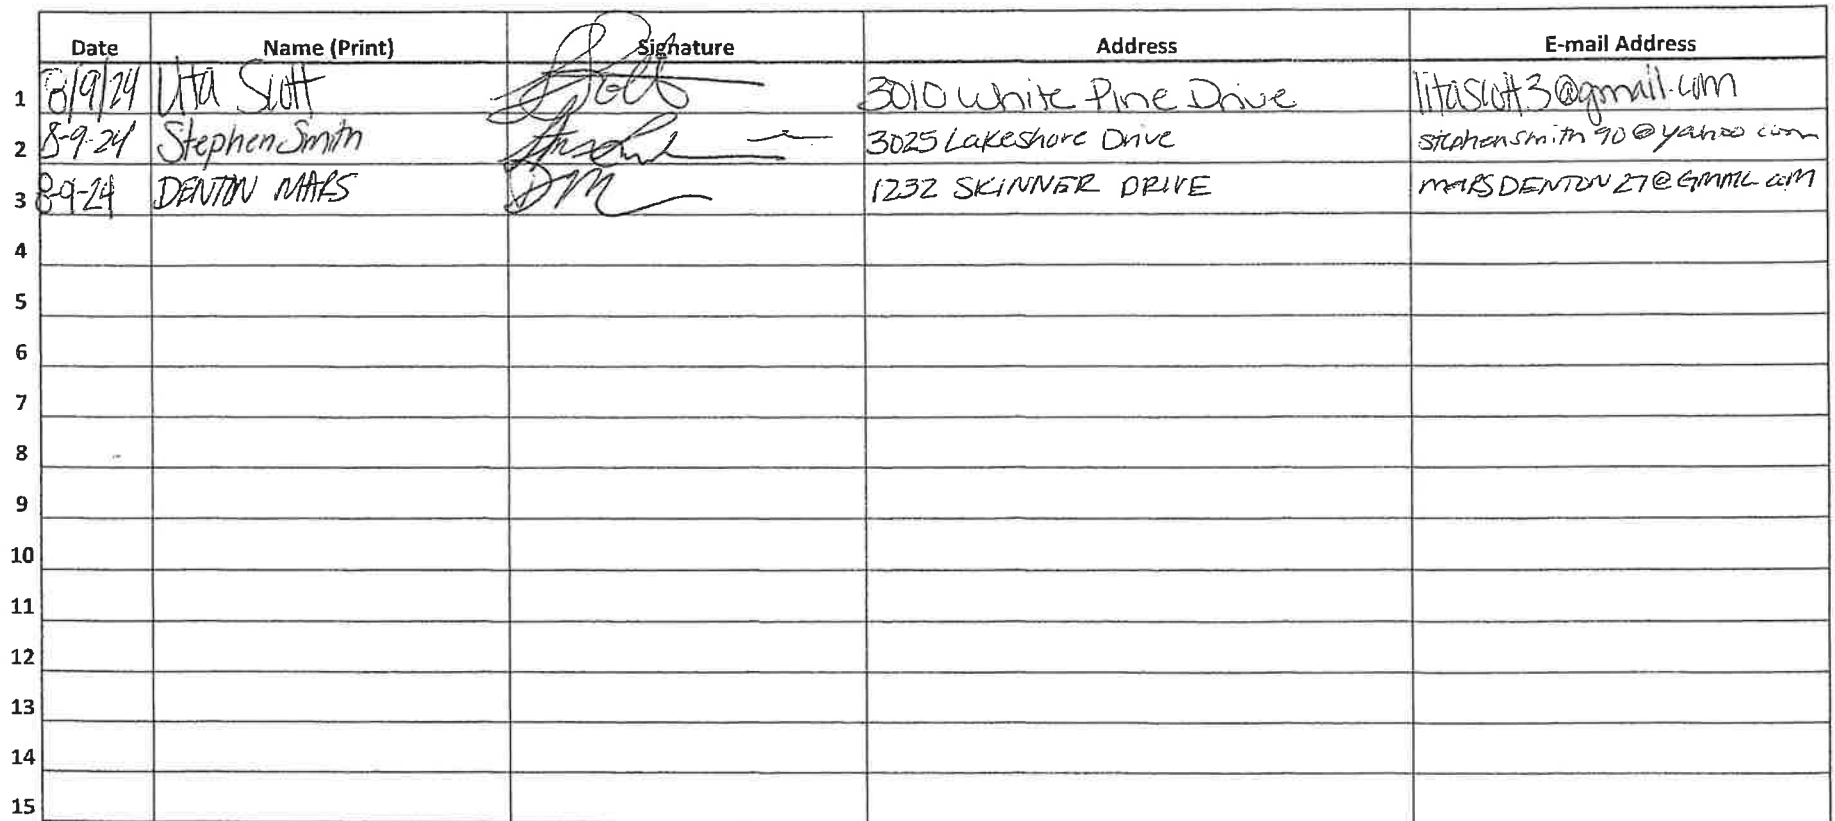 Date Name (Print) Signature Address E-mail Address
1 8/9/24 Lita Scott 3010 White Pine Drive litascott3@gmail.com
2 8-9-24 Stephen Smith 3025 Lakeshore Drive stephensmith90@yahoo.com
3 8-9-24 DENTON MARS DM 1232 SKINNER DRIVE MARSDENTON27@GMAIL.COM
4
5
6
7
8
9
10
11
12
13
14
15